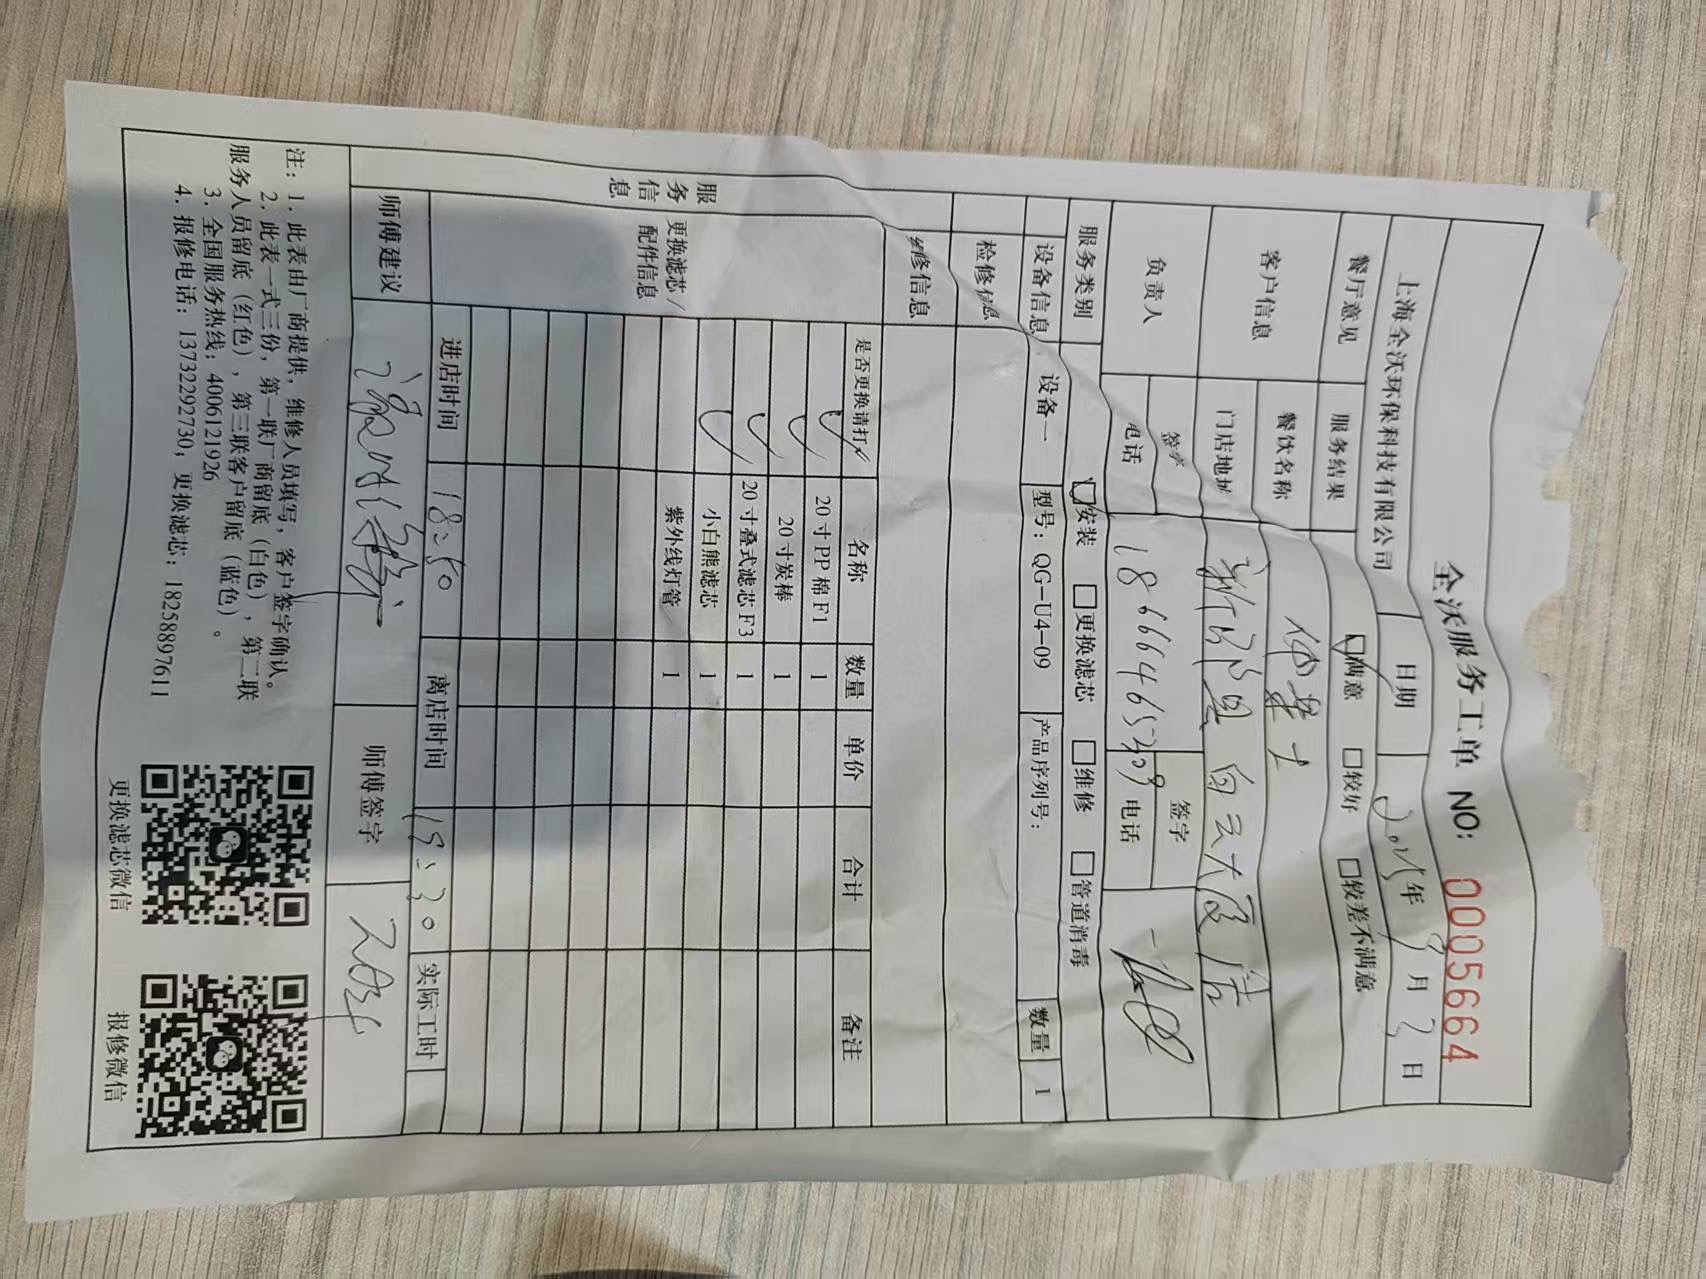 全沃服务工单 NO: 0005664
上海全沃环保科技有限公司 日期 2025年 月 2日
餐厅意见 服务结果 □满意 □较好 □较差不满意
客户信息 餐饮名称
门店地址 白云大厦店
负责人 签字 签字
电话 电话
服务类别 □安装 □更换滤芯 □维修 □管道消毒
服务信息
设备信息 设备一 型号：QG-U4-09 产品序列号： 数量 1
检修信息
维修信息
更换滤芯/配件信息
是否更换请打√ 名称 数量 单价 合计 备注
✓ 20寸PP棉F1 1
✓ 20寸炭棒 1
✓ 20寸叠式滤芯F3 1
✓ 小白熊滤芯 1
紫外线灯管 1
进店时间 18:50 离店时间 19:30 实际工时
师傅建议 师傅签字
注：1. 此表由厂商提供，维修人员填写，客户签字确认。
2. 此表一式三份，第一联厂商留底（白色），第二联
服务人员留底（红色），第三联客户留底（蓝色）。
3. 全国服务热线：4006121926
4. 报修电话：13732292730；更换滤芯：18258897611
更换滤芯微信 报修微信